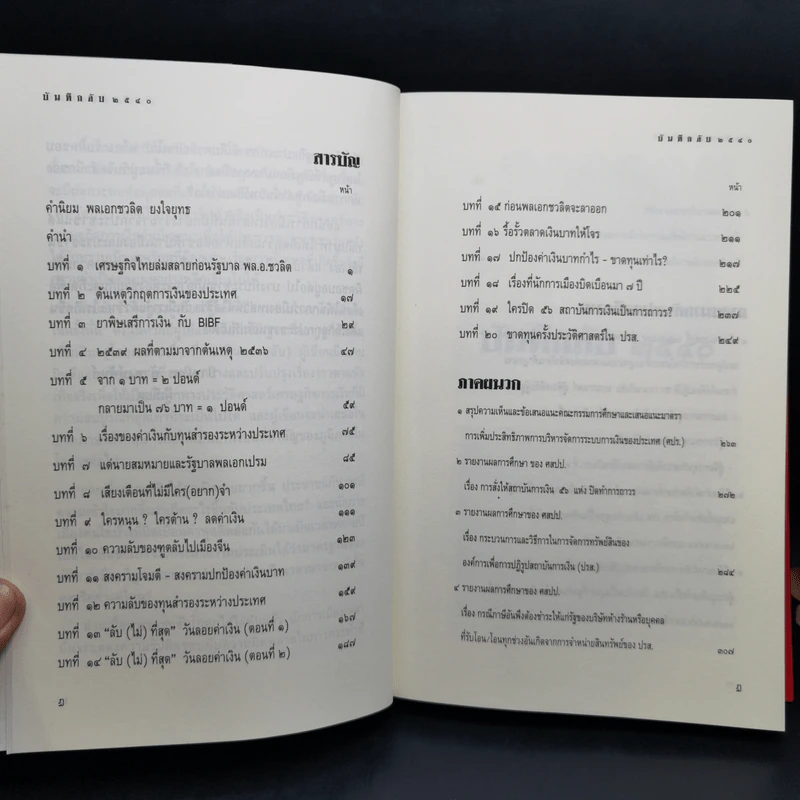 บันทึกลับ ๒๕๔๐
สารบัญ
หน้า
คำนิยม พลเอกชวลิต ยงใจยุทธ
คำนำ
บทที่ ๑ เศรษฐกิจไทยล่มสลายก่อนรัฐบาล พล.อ.ชวลิต ๑
บทที่ ๒ ต้นเหตุวิกฤตการเงินของประเทศ ๑๗
บทที่ ๓ ยาพิษเสรีการเงิน กับ BIBF ๒๙
บทที่ ๔ ๒๕๓๙ ผลที่ตามมาจากต้นเหตุ ๒๕๓๖ ๔๗
บทที่ ๕ จาก ๑ บาท = ๒ ปอนด์
กลายมาเป็น ๗๖ บาท = ๑ ปอนด์ ๕๙
บทที่ ๖ เรื่องของค่าเงินกับทุนสำรองระหว่างประเทศ ๗๕
บทที่ ๗ แด่นายสมหมายและรัฐบาลพลเอกเปรม ๘๕
บทที่ ๘ เสียงเตือนที่ไม่มีใคร(อยาก)จำ ๑๐๑
บทที่ ๙ ใครหนุน ? ใครต้าน ? ลดค่าเงิน ๑๑๑
บทที่ ๑๐ ความลับของฑูตลับไปเมืองจีน ๑๒๓
บทที่ ๑๑ สงครามโจมตี - สงครามปกป้องค่าเงินบาท ๑๓๙
บทที่ ๑๒ ความลับของทุนสำรองระหว่างประเทศ ๑๕๙
บทที่ ๑๓ "ลับ (ไม่) ที่สุด" วันลอยค่าเงิน (ตอนที่ ๑) ๑๖๗
บทที่ ๑๔ "ลับ (ไม่) ที่สุด" วันลอยค่าเงิน (ตอนที่ ๒) ๑๘๗
บันทึกลับ ๒๕๔๐
หน้า
บทที่ ๑๕ ก่อนพลเอกชวลิตจะลาออก ๒๐๑
บทที่ ๑๖ รื้อรั้วตลาดเงินบาทให้โจร ๒๑๑
บทที่ ๑๗ ปกป้องค่าเงินบาทกำไร - ขาดทุนเท่าไร? ๒๑๗
บทที่ ๑๘ เรื่องที่นักการเมืองบิดเบือนมา ๗ ปี ๒๒๕
บทที่ ๑๙ ใครปิด ๕๖ สถาบันการเงินเป็นการถาวร? ๒๓๗
บทที่ ๒๐ ขาดทุนครั้งประวัติศาสตร์ใน ปรส. ๒๔๙
ภาคผนวก
๑ สรุปความเห็นและข้อเสนอแนะคณะกรรมการศึกษาและเสนอแนะมาตรา
การเพิ่มประสิทธิภาพการบริหารจัดการระบบการเงินของประเทศ (ศปร.) ๒๖๓
๒ รายงานผลการศึกษา ของ ศสปป.
เรื่อง การสั่งให้สถาบันการเงิน ๕๖ แห่ง ปิดทำการถาวร ๒๗๒
๓ รายงานผลการศึกษาของ ศสปป.
เรื่อง กระบวนการและวิธีการในการจัดการทรัพย์สินของ
องค์การเพื่อการปฏิรูปสถาบันการเงิน (ปรส.) ๒๘๔
๔ รายงานผลการศึกษาของ ศสปป.
เรื่อง กรณีภาษีอันพึงต้องชำระให้แก่รัฐของบริษัทห้างร้านหรือบุคคล
ที่รับโอน/โอนทุกช่วงอันเกิดจากการจำหน่ายสินทรัพย์ของ ปรส. ๓๐๗